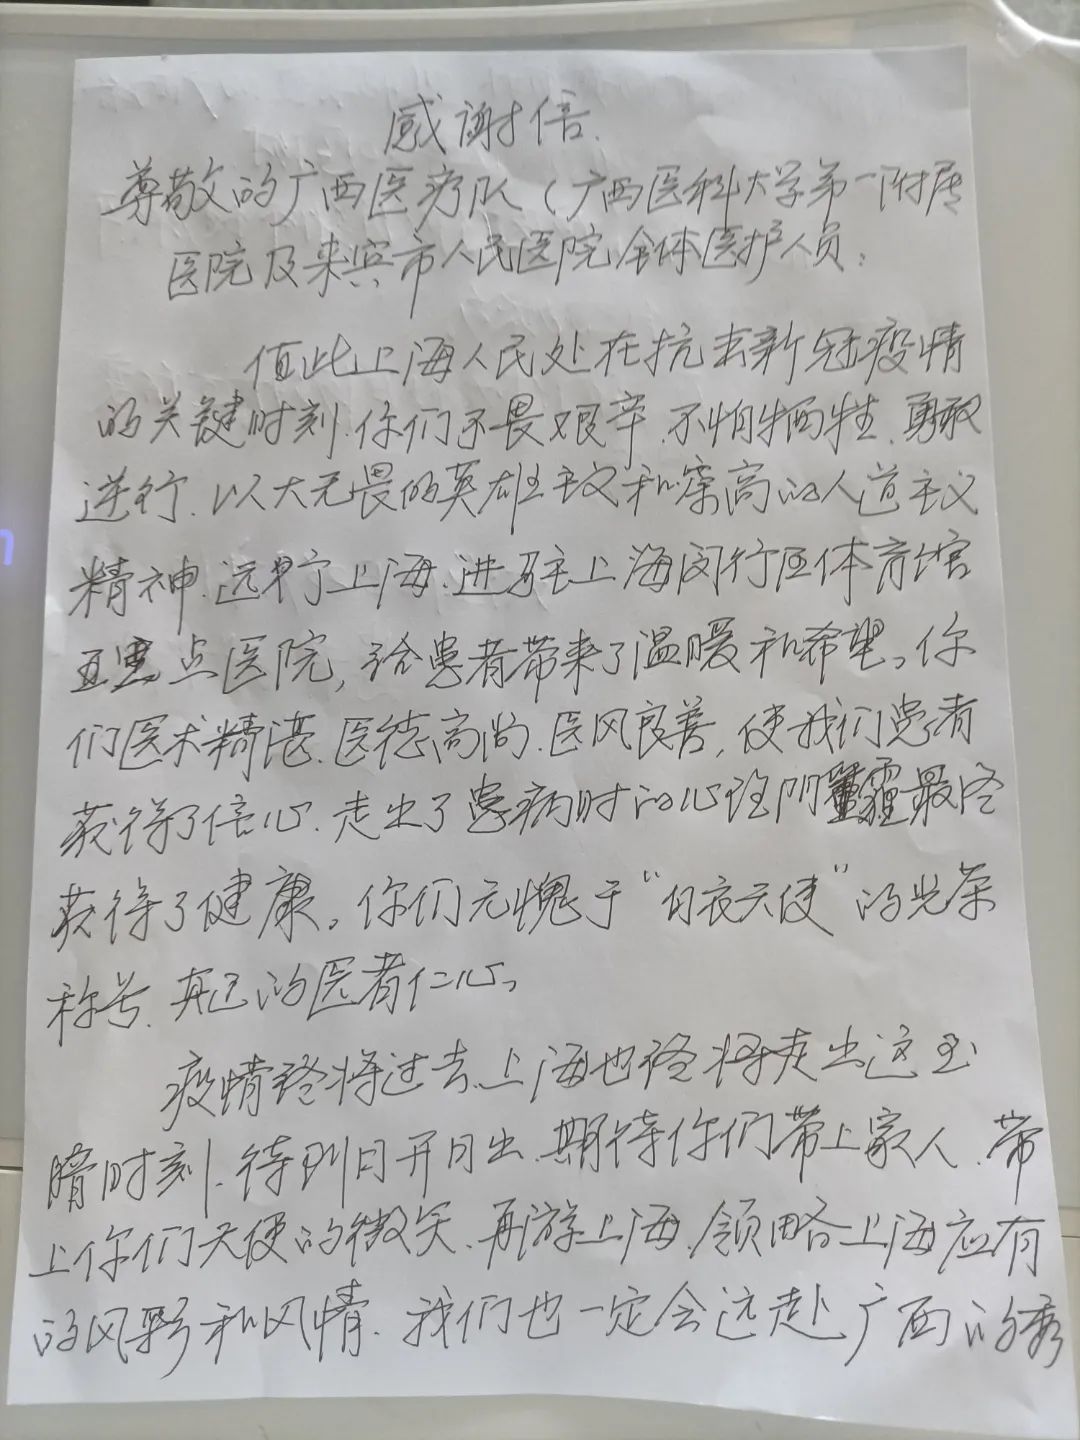 感谢信.
尊敬的广西医疗队（广西医科大学第一附属
医院及来宾市人民医院全体医护人员：
值此上海人民处在抗击新冠疫情
的关键时刻.你们不畏艰辛.不怕牺牲.勇敢
逆行.以大无畏的英雄主义和崇高的人道主义
精神.远赴上海.进驻上海闵行区体育馆
五里点医院,给患者带来了温暖和希望。你
们医术精湛.医德高尚.医风良善,使我们患者
获得了信心.走出了患病时的心理阴霾最终
获得了健康。你们无愧于“白衣天使”的光荣
称号.真正的医者仁心。
疫情终将过去.上海也终将走出这至
暗时刻.待到日开月出.期待你们带上家人.带
上你们天使的微笑.再游上海.领略上海应有
的风彩和风情.我们也一定会远赴广西的秀